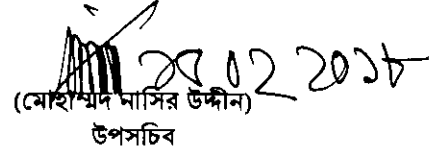 ২৫ ০২ ২০১৮
(মোহাম্মদ নাসির উদ্দীন)
উপসচিব